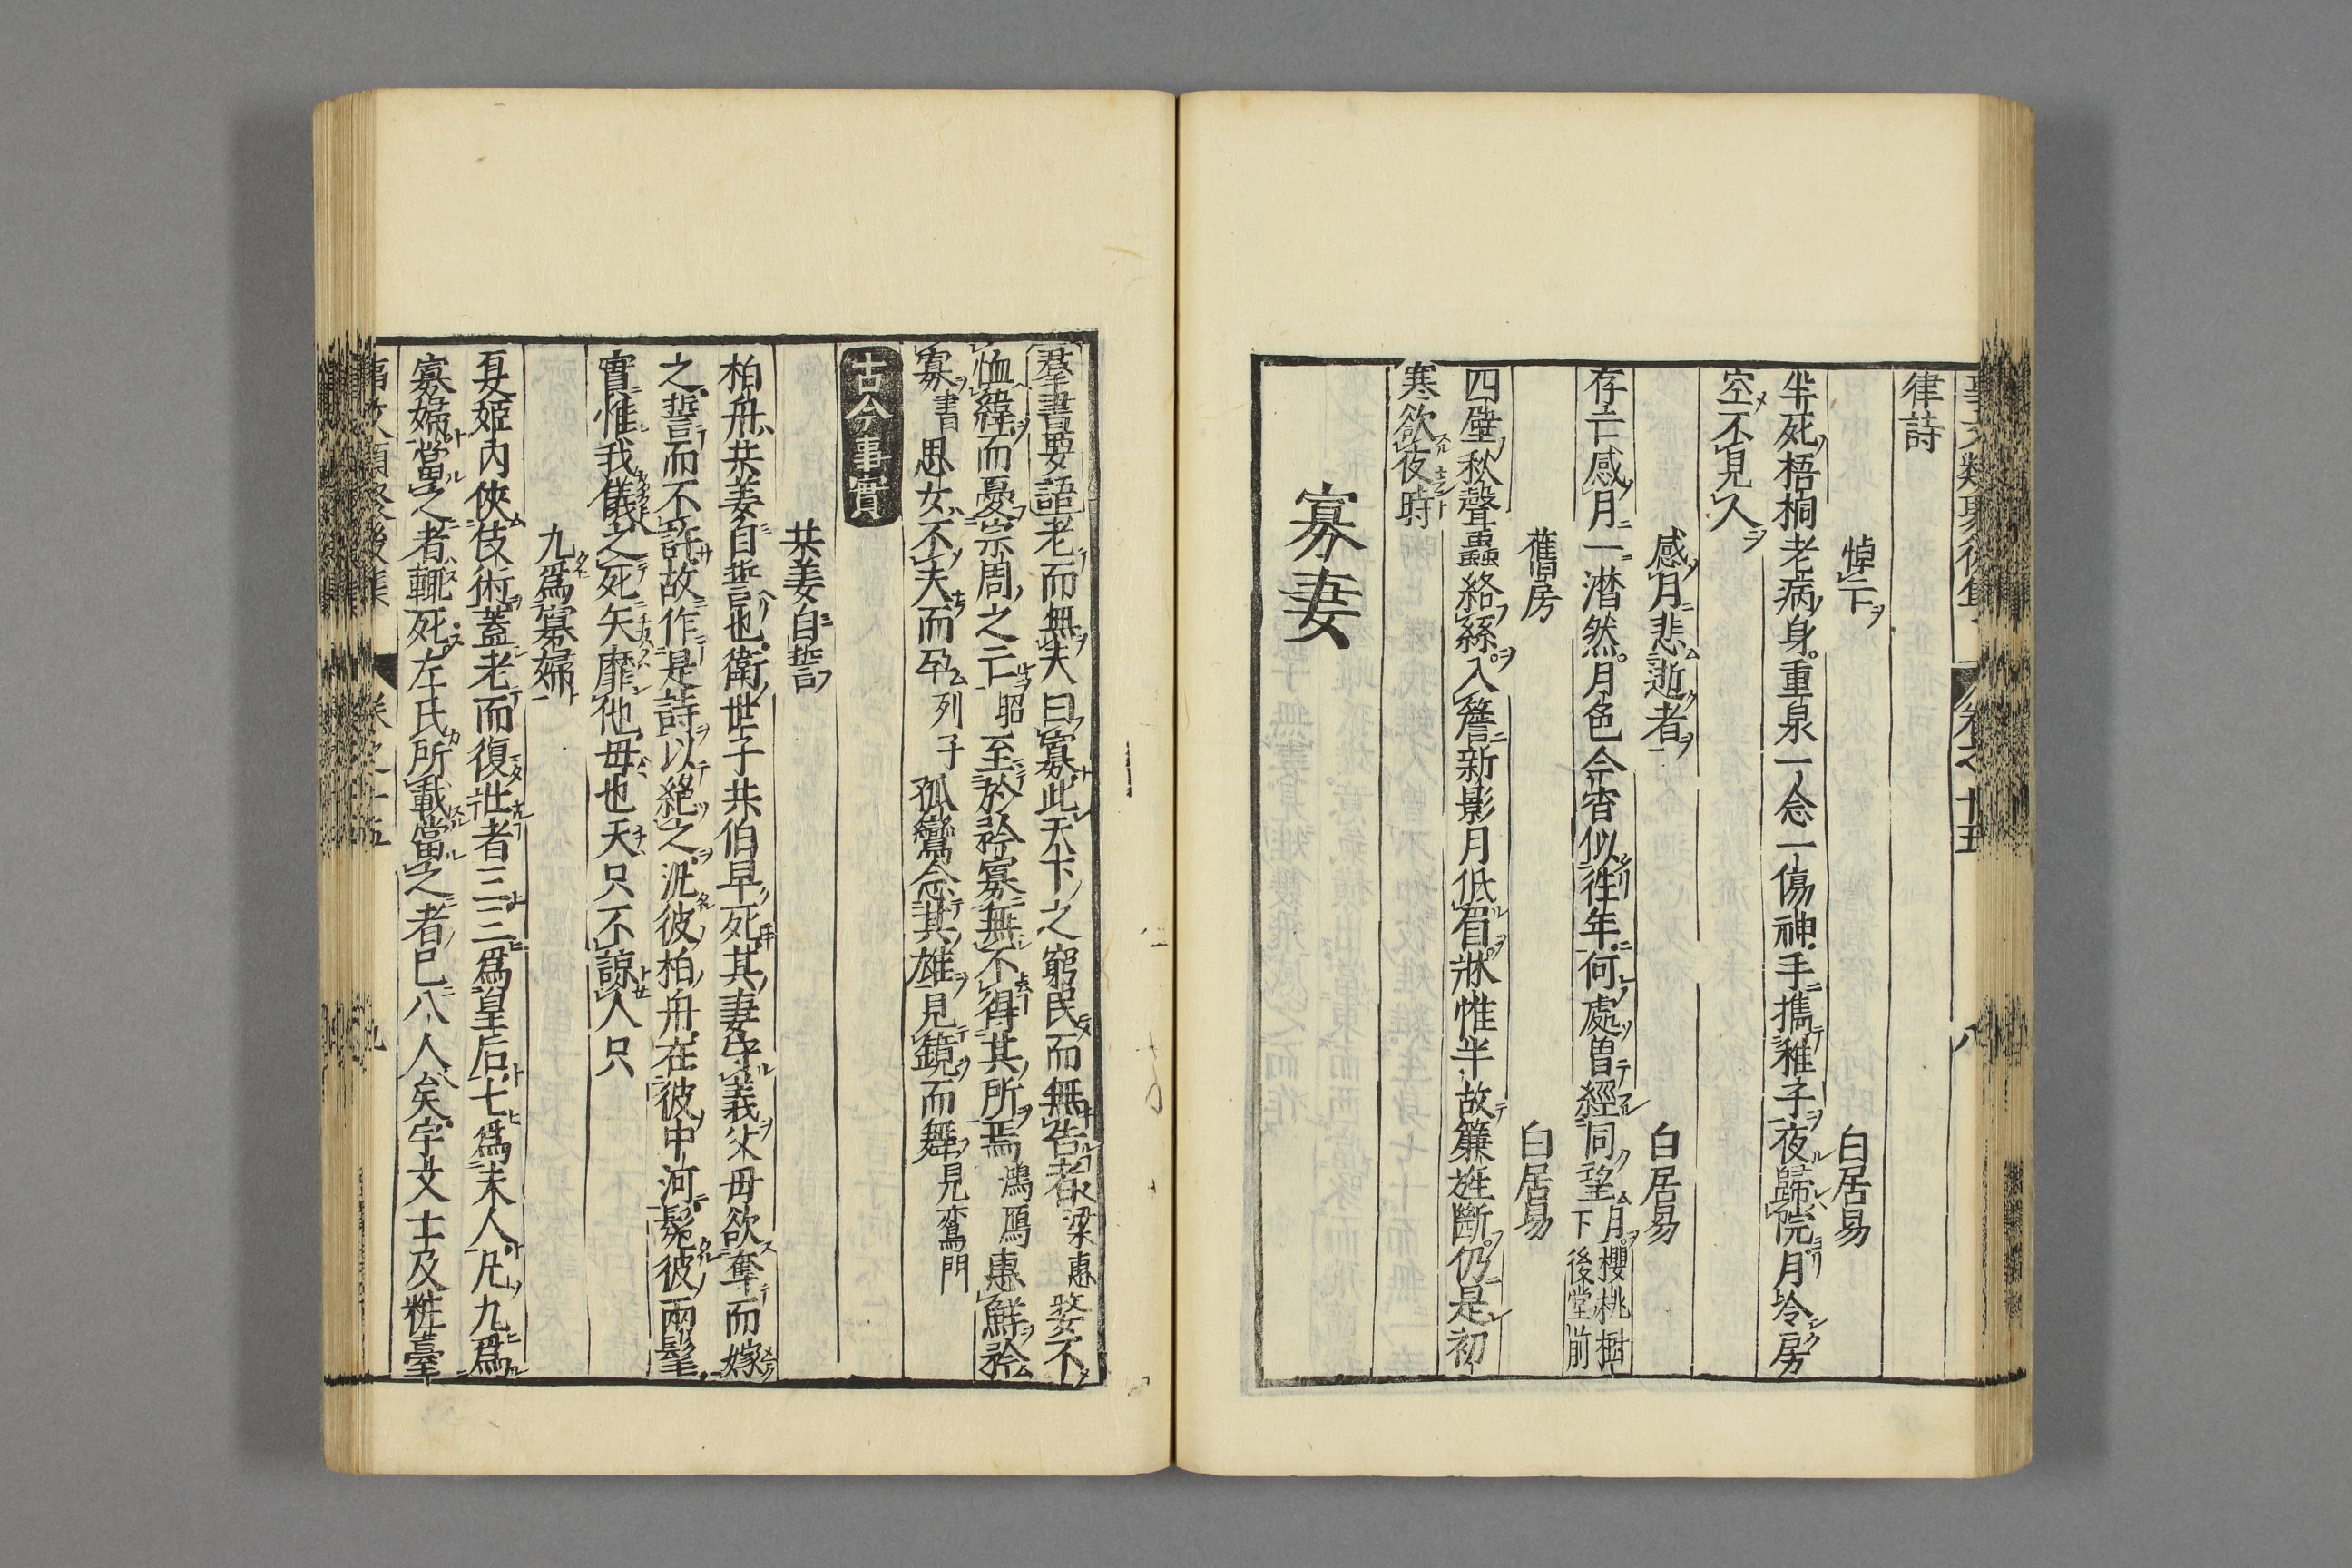 律詩
悼亡 白居易
半死梧桐老病身重泉一念一傷神手攜稚子夜歸院月冷房
空不見人
感月悲逝者 白居易
存亡感月一潸然月色今宵似往年何處曽經同望月櫻桃樹下後堂前
舊房 白居易
四壁秋聲蟲絡絲入簷新影月低眉牀帷半故簾旌斷仍是初
寒欲夜時
寡妻
羣書要語老而無夫曰寡此天下之窮民而無告者梁惠嫠不
恤緯而憂宗周之亡昭至於矜寡無不得其所焉鴻鴈惠鮮矜
寡書思女不夫而孕列子孤鸞念其雄見鏡而舞見鸞門
古今事實
共姜自誓
柏舟共姜自誓也衛世子共伯早死其妻守義父母欲奪而嫁
之誓而不許故作是詩以絕之汎彼柏舟在彼中河髧彼兩髦
實惟我儀之死矢靡他毋也天只不諒人只
九爲寡婦
夏姬内俠伎術蓋老而復壯者三三爲皇后七爲夫人凡九爲
寡婦當之者輒死左氏所載當之者已八人矣宇文士及粧臺